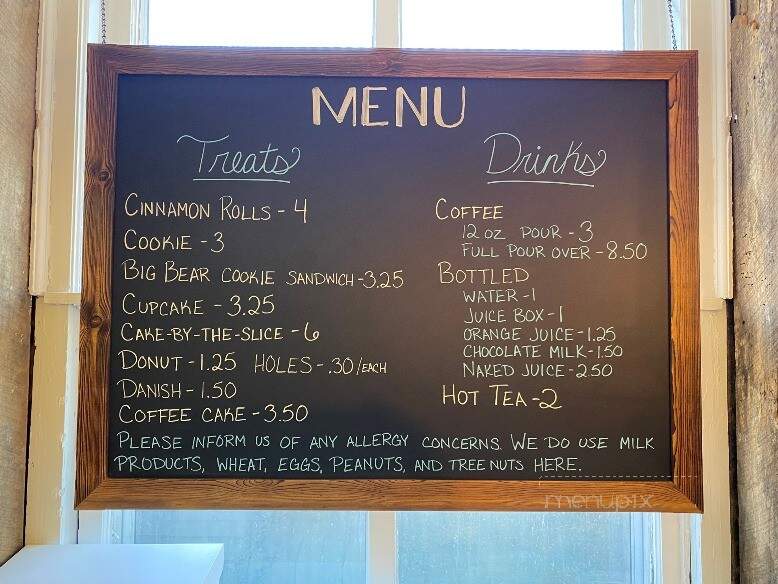 MENU
Treats
CINNAMON ROLLS - 4
COOKIE - 3
BIG BEAR COOKIE SANDWICH - 3.25
CUPCAKE - 3.25
CAKE-BY-THE-SLICE - 6
DONUT - 1.25 HOLES - .30/EACH
DANISH - 1.50
COFFEE CAKE - 3.50
Drinks
COFFEE
12 OZ POUR - 3
FULL POUR OVER - 8.50
BOTTLED
WATER - 1
JUICE BOX - 1
ORANGE JUICE - 1.25
CHOCOLATE MILK - 1.50
NAKED JUICE - 2.50
HOT TEA - 2
PLEASE INFORM US OF ANY ALLERGY CONCERNS. WE DO USE MILK
PRODUCTS, WHEAT, EGGS, PEANUTS, AND TREE NUTS HERE.
menupix